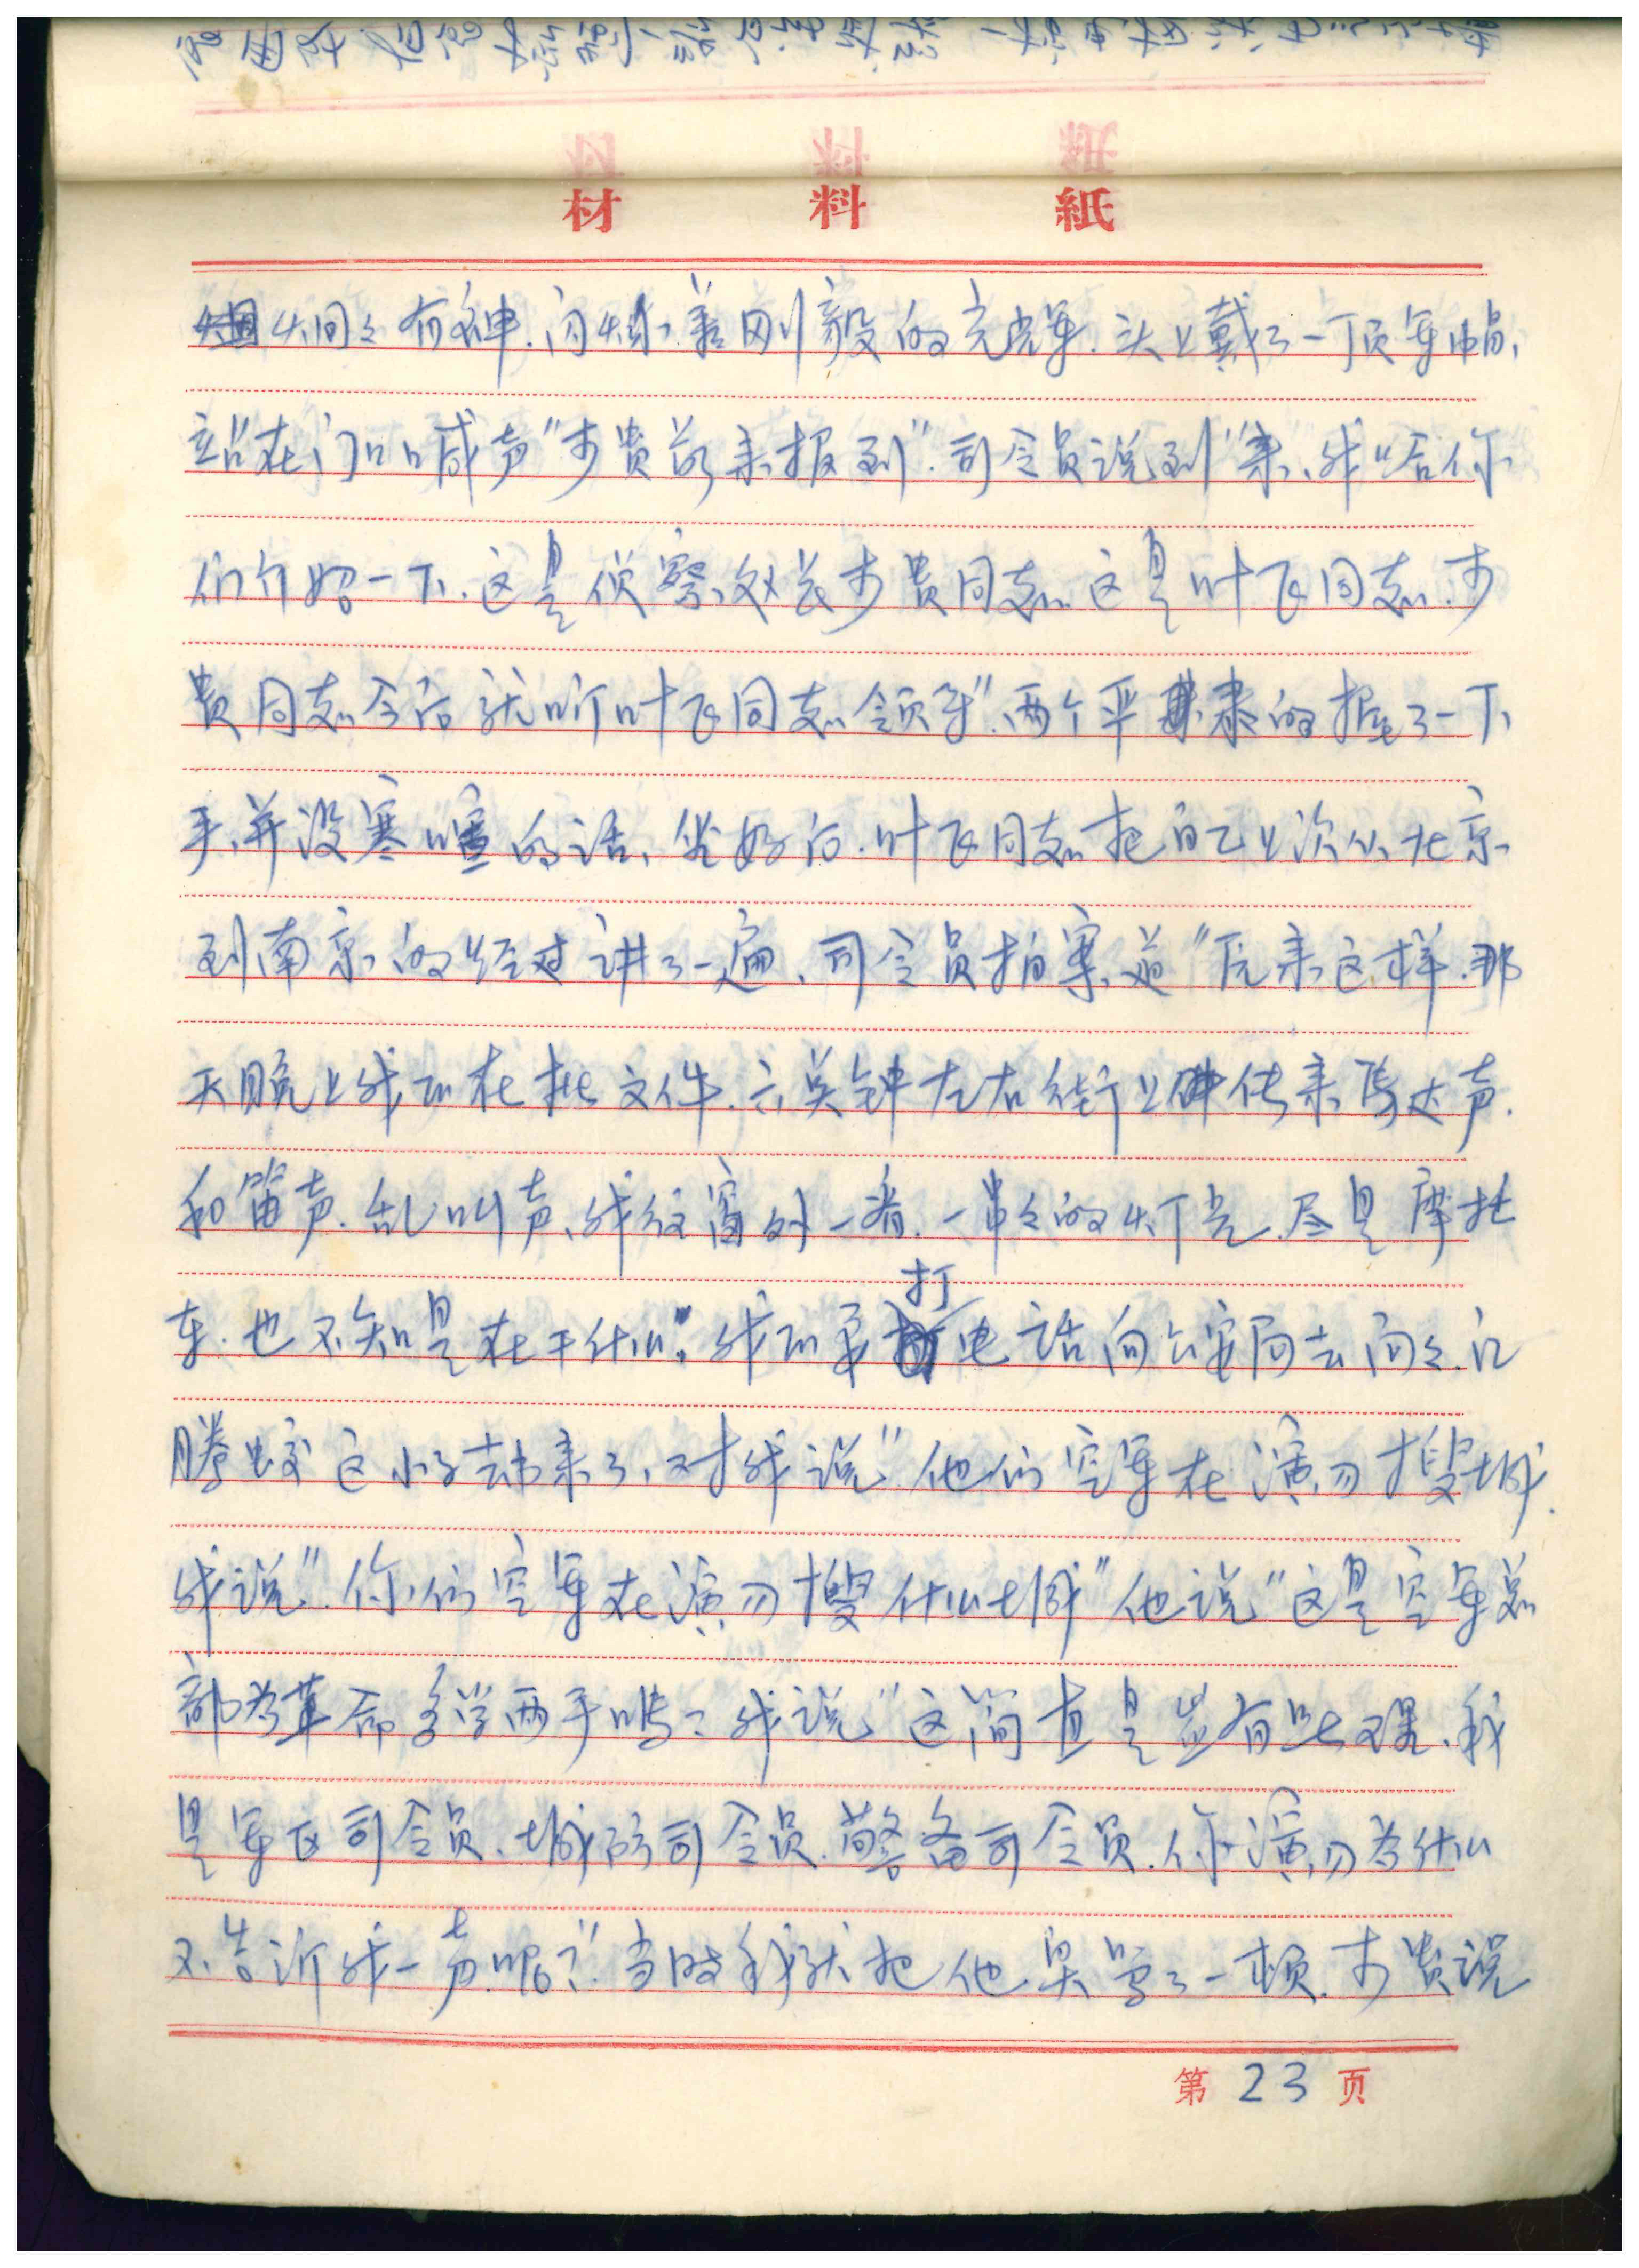 材 料 紙
炯々有神.闪烁着刚毅的光辉.头上戴了一顶军帽、
站在门口喊声"步贵前来报到".司令员说到"来、我给你
们介绍一下.这是侦察处长步贵同志.这是叶飞同志.步
贵同志今后就听叶飞同志领导".两个严肃的握了一下
手、并没寒喧的话、坐好后.叶飞同志把自己上次从北京
到南京的经过讲了一遍、司令员拍案道"原来这样.那
天晚上我正在批文件.六点钟左右街上传来马达声.
和笛声.乱叫声、我往窗外一看.一串々的灯光.尽是摩托
车.也不知是在干什么.我正要打电话向公安局去问々.
腾蛟这小子却来了、对我说"他们空军在演习搜城.
我说".你们空军在演习搜什么城"他说"这是空军总
部为革命多学两手嘛.我说"这简直是岂有此理、我
是军区司令员.城防司令员.警备司令员.你演习为什么
不告诉我一声呢?".当时我就把他臭骂了一顿.步贵说
第 23 页